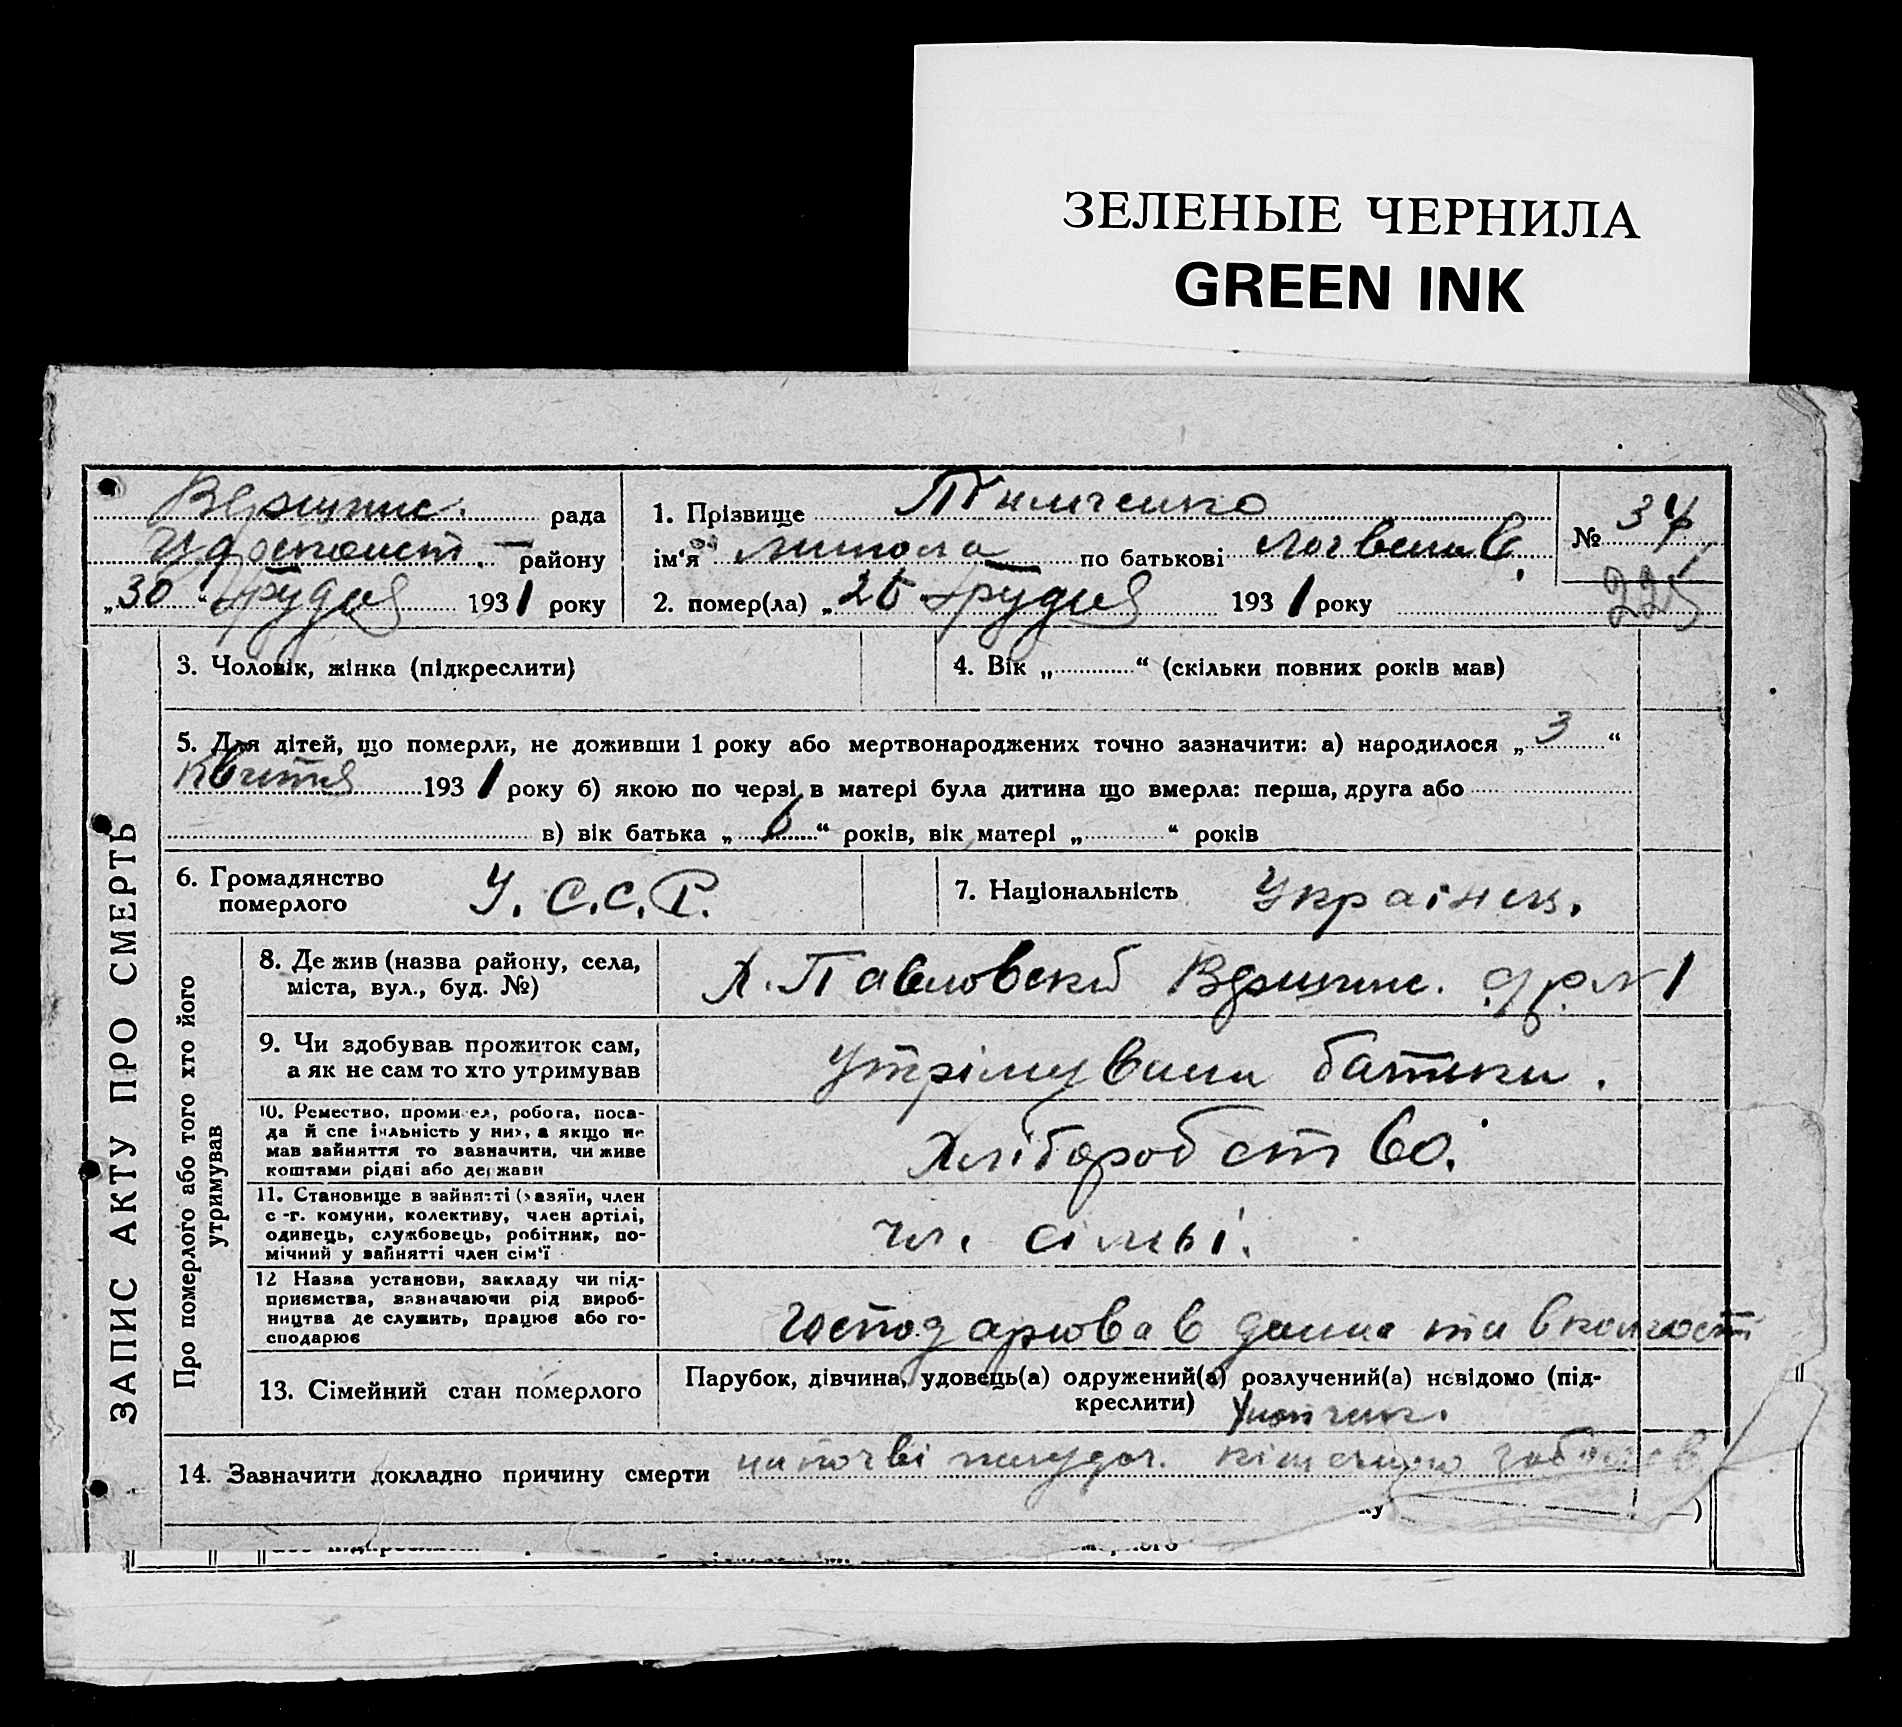 ЗЕЛЕНЫЕ ЧЕРНИЛА
GREEN INK
рада
району
„30“ Грудня 1931 року
1. Прізвище Тимченко
ім‘я Микола по батькові
2. помер(ла) „ Грудня 1931 року
№ 34
225
ЗАПИС АКТУ ПРО СМЕРТЬ
3. Чоловік, жінка (підкреслити)
4. Вік „ “ (скільки повних років мав)
5. Для дітей, що померли, не доживши 1 року або мертвонароджених точно зазначити: а) народилося „3“
Квітня 1931 року б) якою по черзі в матері була дитина що вмерла: перша, друга або
в) вік батька „6“ років, вік матері „ “ років
6. Громадянство
померлого
У. С.С.Р.
7. Національність Українец.
Про померлого або того хто його
утримував
8. Де жив (назва району, села,
міста, вул., буд. №)
Х. Павловский
9. Чи здобував прожиток сам,
а як не сам то хто утримував
Утрімували батьки.
10. Ремество, промисел, робота, поса-
да й спеціяльність у них, а якщо не
мав зайняття то зазначити, чи живе
коштами рідні або держави
Хліборобство.
11. Становище в зайнятті (хазяїн, член
с.-г. комуни, колективу, член артілі,
одинець, службовець, робітник, по-
мічний у зайнятті член сім‘ї
чл. сімьі.
12 Назва установи, закладу чи під-
приємства, зазначаючи рід вироб-
ництва де служить, працює або го-
сподарює
господарював дома та в колгості
13. Сімейний стан померлого
Парубок, дівчина, удовець(а) одружений(а) розлучений(а) невідомо (під-
креслити)
14. Зазначити докладно причину смерти на почві